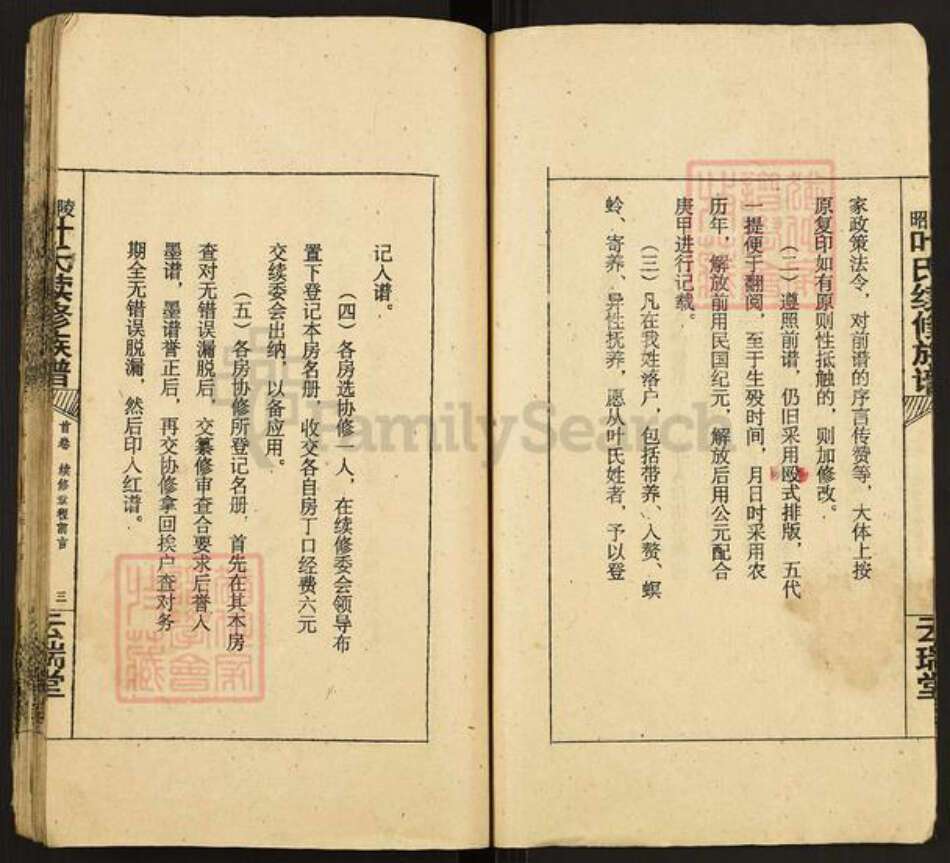 昭
叶氏续修族谱
云瑞堂
家政策法令，对前谱的序言传赞等，大体上按
原复印如有原则性抵触的，则加修改。
（二）遵照前谱，仍旧采用殴式排版，五代
一提便于翻阅，至于生殁时间，月日时采用农
历年，解放前用民国纪元，解放后用公元配合
庚甲进行记载。
（三）凡在我姓落户，包括带养、入赘、螟
蛉、寄养、异性抚养，愿从叶氏姓者，予以登
记入谱。
（四）各房选协修一人，在续修委会领导布
置下登记本房名册，收交各自房丁口经费六元
交续委会出纳，以备应用。
（五）各房协修所登记名册，首先在其本房
查对无错误漏脱后，交纂修审查合要求后誉人
墨谱，墨谱誉正后，再交协修拿回挨户查对务
期全无错误脱漏，然后印入红谱。
陵
叶氏续修族谱
首卷 续修章程前言
三
云瑞堂
FamilySearch